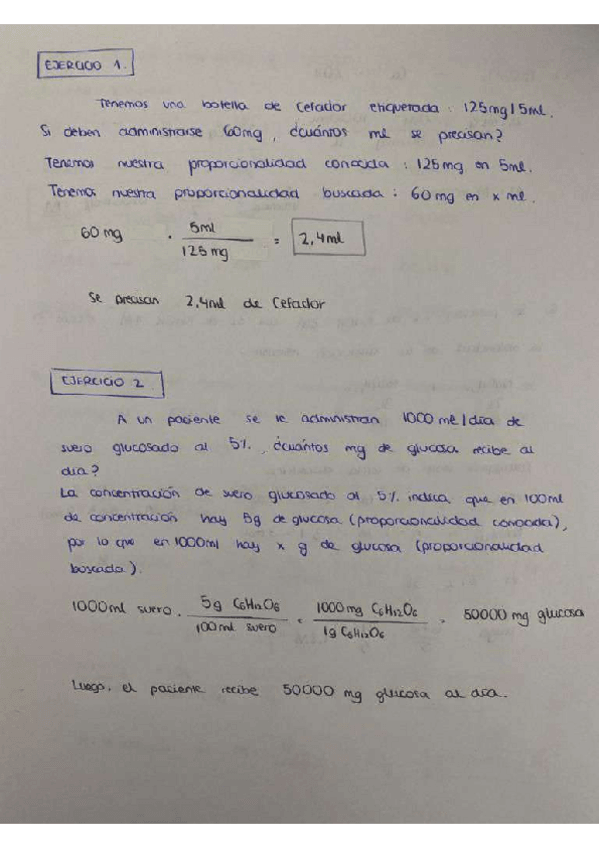 EJERCICIO 1.
Tenemos una botella de Cefaclor etiquetada: 125mg/5ml.
Si deben administrarse 60mg, ¿cuántos ml se precisan?
Tenemos nuestra proporcionalidad conocida: 125mg en 5ml.
Tenemos nuestra proporcionalidad buscada: 60mg en x ml.
60mg · 5ml / 125mg = 2,4ml
Se precisan 2,4ml de Cefaclor
EJERCICIO 2
A un paciente se le administran 1000ml/día de
suero glucosado al 5%, ¿cuántos mg de glucosa recibe al
dia?
La concentración de suero glucosado al 5% indica que en 100ml
de concentración hay 5g de glucosa (proporcionalidad conocida),
por lo que en 1000ml hay x g de glucosa (proporcionalidad
buscada).
1000ml suero · 5g C6H12O6 / 100ml suero · 1000mg C6H12O6 / 1g C6H12O6 = 50000 mg glucosa
Luego, el paciente recibe 50000 mg glucosa al día.